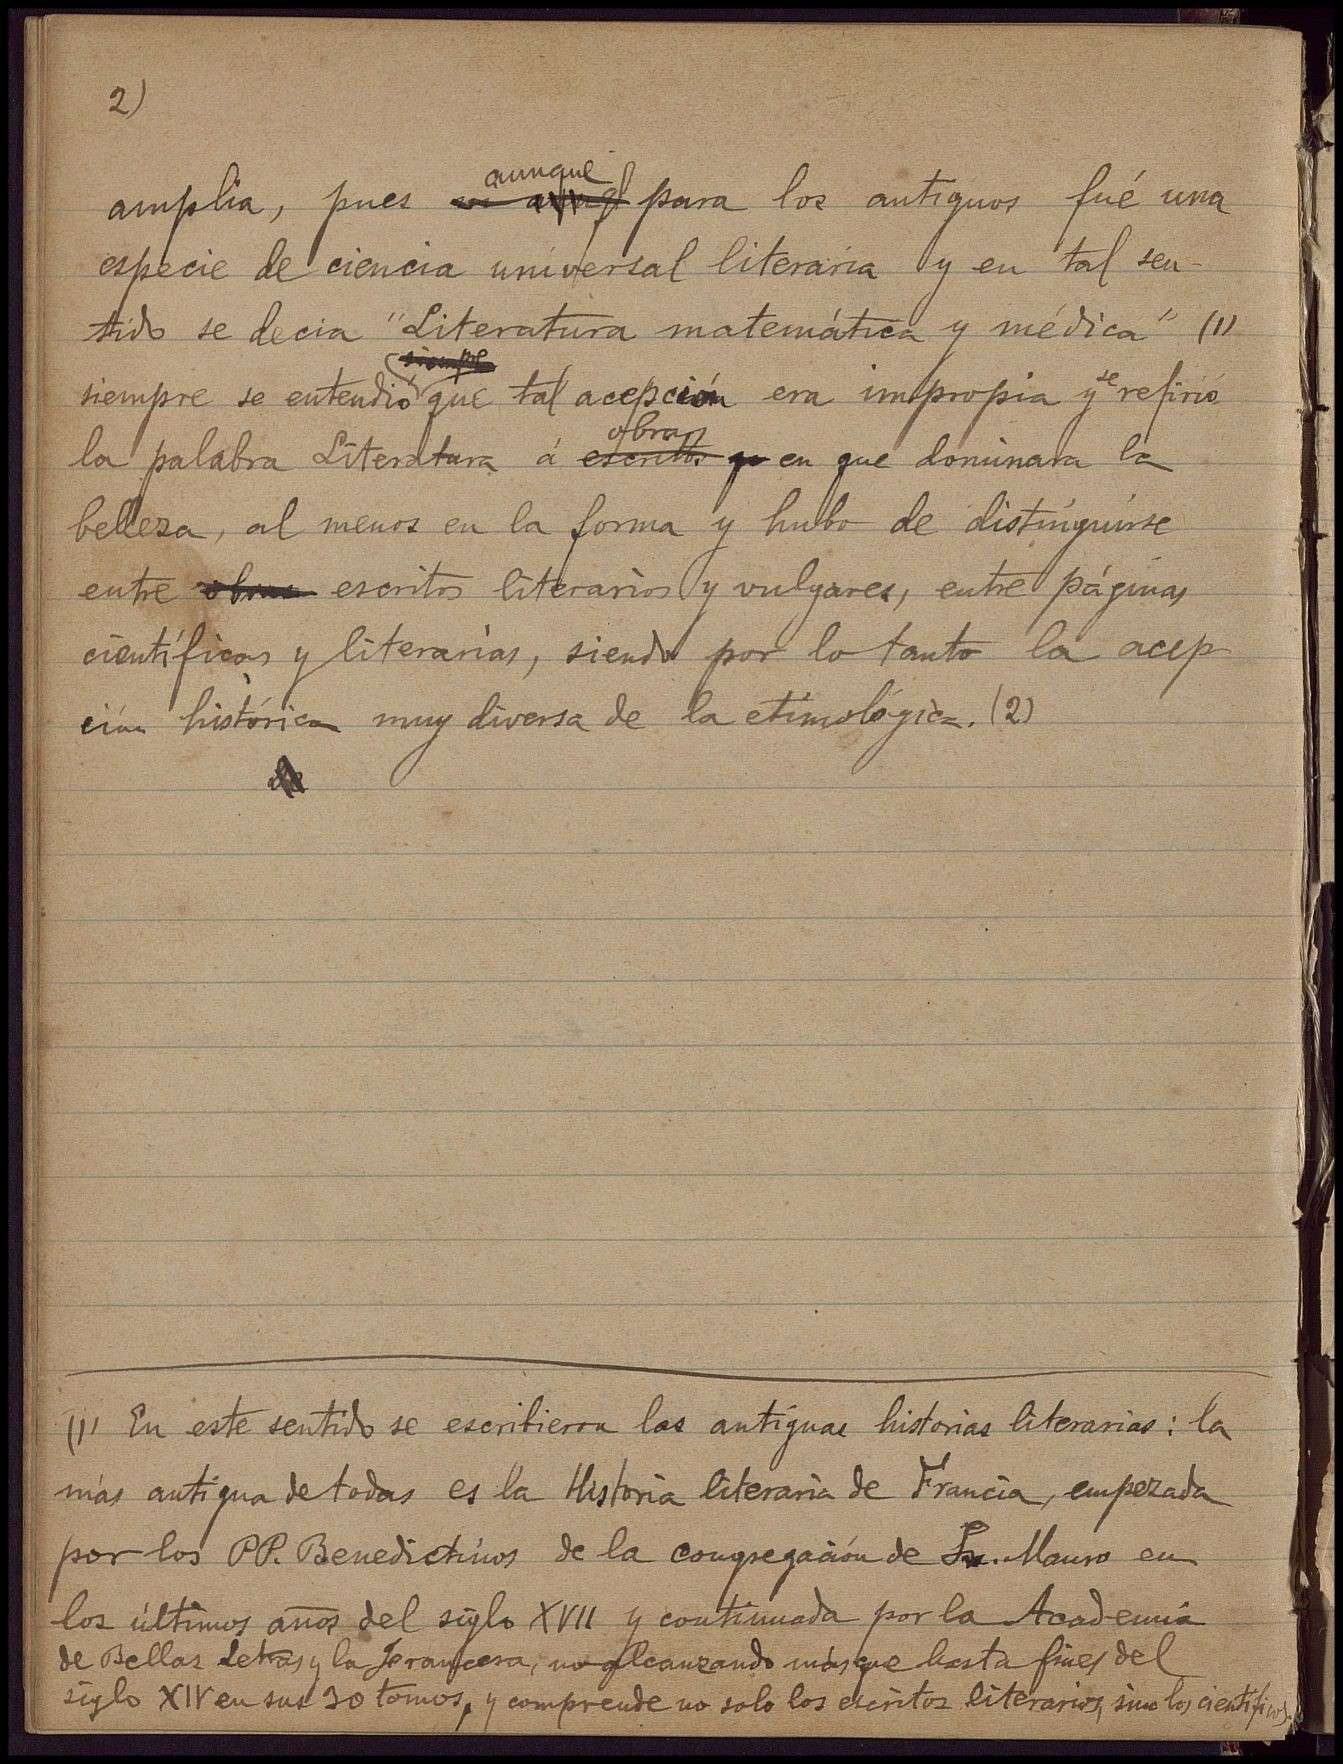 2)
amplia, pues aunque para los antiguos fué una
especie de ciencia universal literaria y en tal sen-
tido se decia "Literatura matemática y médica" (1)
siempre se entendió que tal acepción era impropia y se refirió
la palabra Literatura á obras en que dominara la
belleza, al menos en la forma y hubo de distinguirse
entre obras escritos literarios y vulgares, entre páginas
científicas y literarias, siendo por lo tanto la acep
ción histórica muy diversa de la etimológica. (2)
(1) En este sentido se escribieron las antiguas historias literarias: la
más antigua de todas es la Historia literaria de Francia, empezada
por los PP. Benedictinos de la congregación de Sn. Mauro en
los últimos años del siglo XVII y continuada por la Academia
de Bellas Letras y la Francesa, no alcanzando más que hasta fines del
siglo XIV en sus 30 tomos, y comprende no solo los escritos literarios, sino los científicos.